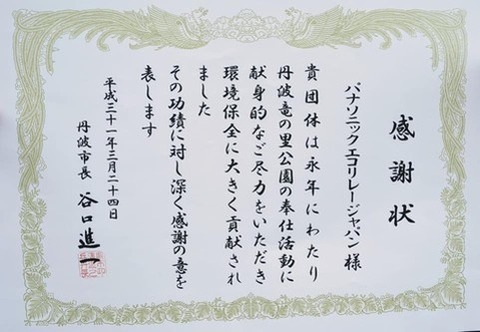 感謝状
パナソニックエコリレージャパン 様
貴団体は永年にわたり
丹波竜の里公園の奉仕活動に
献身的なご尽力をいただき
環境保全に大きく貢献され
ました
その功績に対し深く感謝の意を
表します
平成三十一年三月二十四日
丹波市長 谷口進一